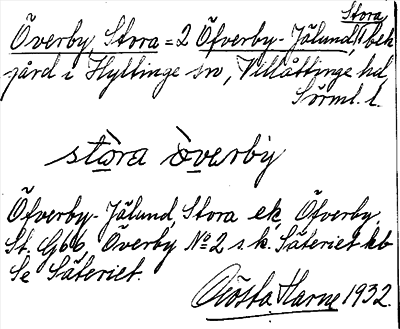 Stora
Överby, Stora = 2 Öfverby-Jälund, 1 bek.
gård i Hyltinge sn, Villåttinge hd,
Sörml. l.
stòra òverby
Öfverby-Jälund, Stora ek, Öfverby,
St. Gbb. Överby No 2 s.k. Säteriet kb
Se Säteriet.
Gösta Harne 1932.